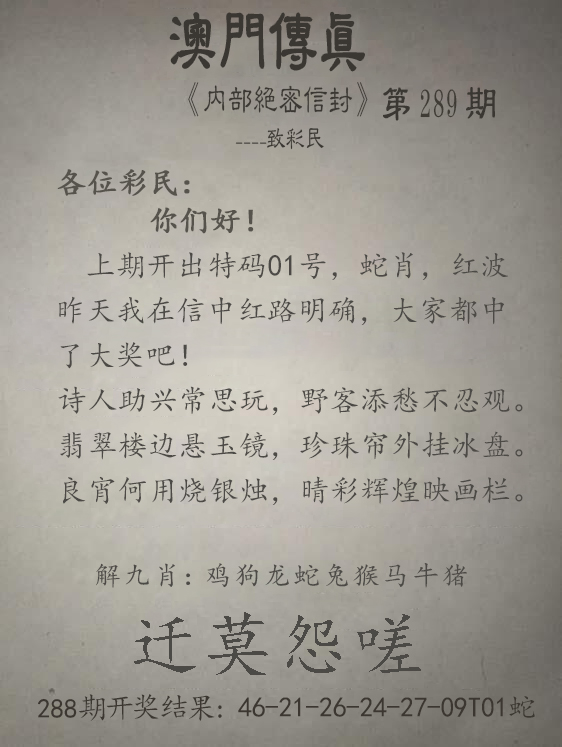 澳門傳真
《内部絕密信封》第289期
----致彩民
各位彩民：
你们好！
上期开出特码01号，蛇肖，红波
昨天我在信中红路明确，大家都中
了大奖吧！
诗人助兴常思玩，野客添愁不忍观。
翡翠楼边悬玉镜，珍珠帘外挂冰盘。
良宵何用烧银烛，晴彩辉煌映画栏。
解九肖：鸡狗龙蛇兔猴马牛猪
迁莫怨嗟
288期开奖结果：46-21-26-24-27-09T01蛇